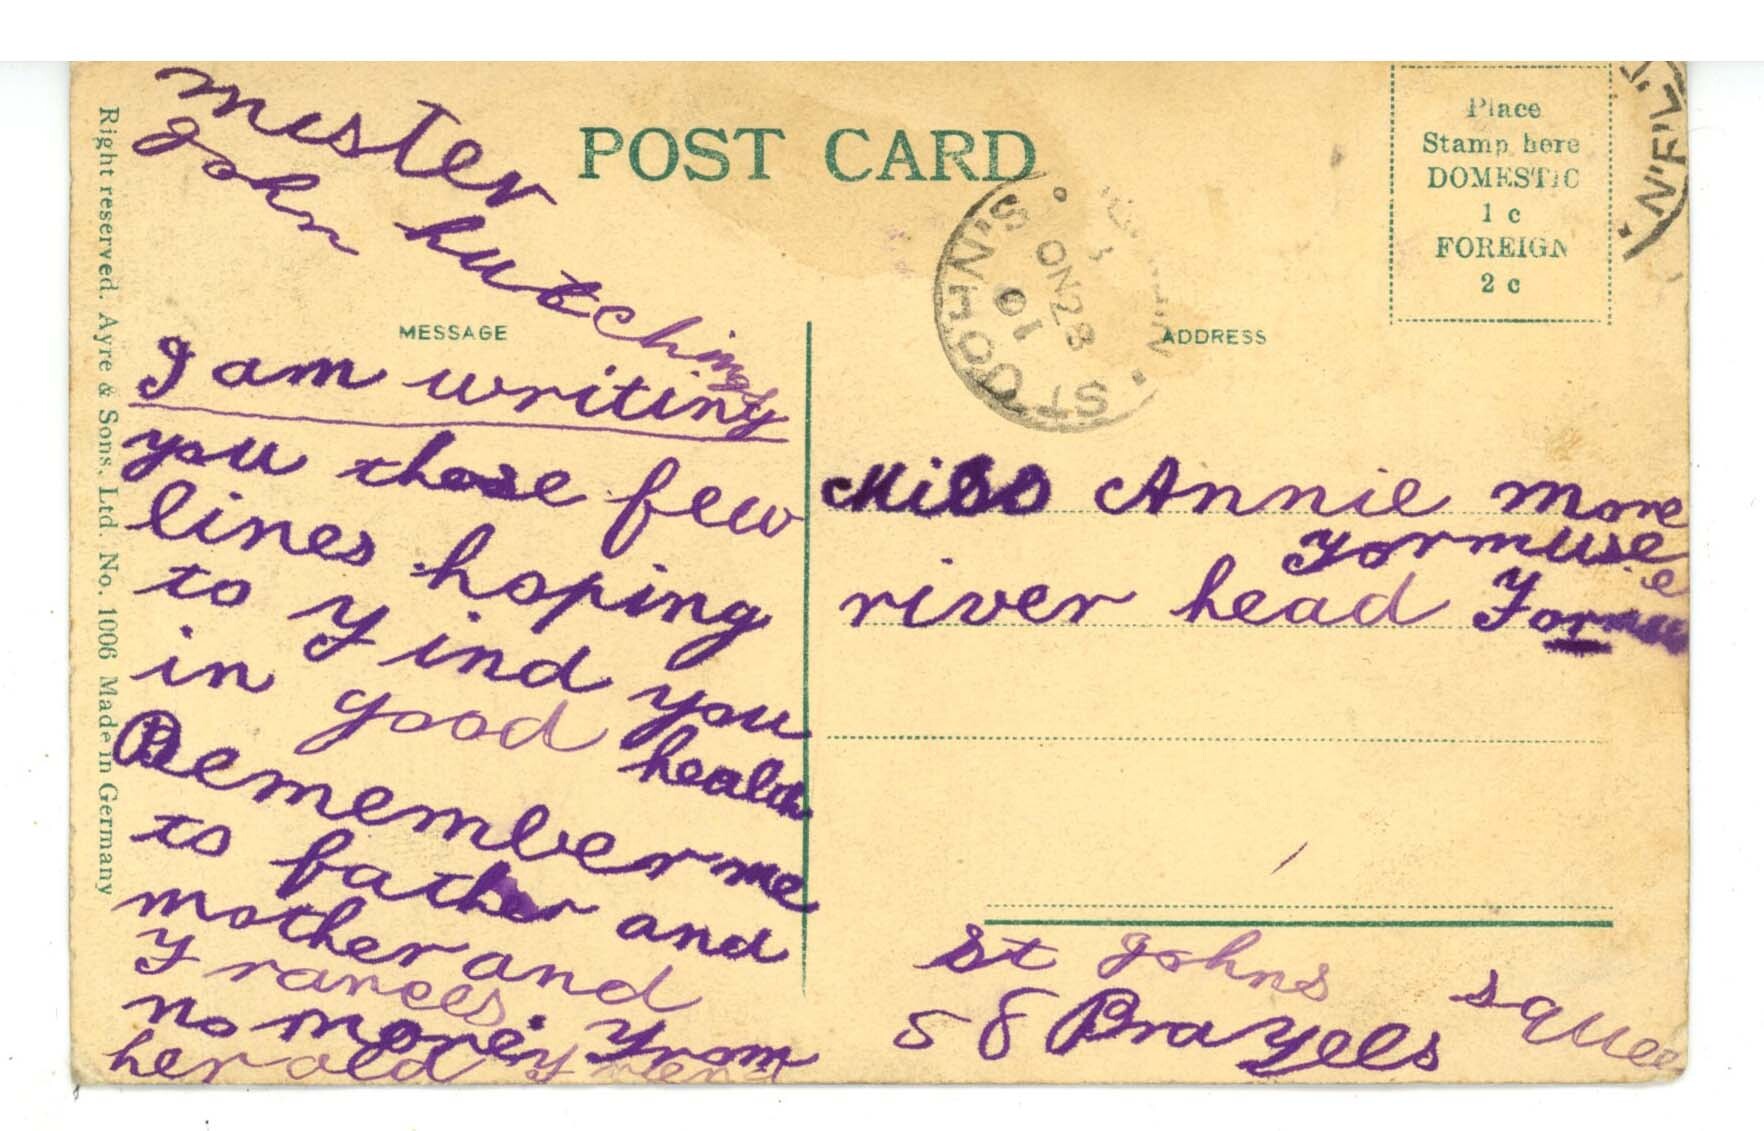 Right reserved. Ayre & Sons, Ltd. No. 1006 Made in Germany
POST CARD
Place
Stamp here
DOMESTIC
1 c
FOREIGN
2 c
N'F'L'
ST JOHN'S
28
10
MESSAGE
ADDRESS
mister
John hutchings
I am writing
you those few
lines hoping
to Find you
in good health
Remember me
to father and
mother and
Frances
no more From
her old Frend
Miss Annie more
river head
St Johns
58 Brazels squee